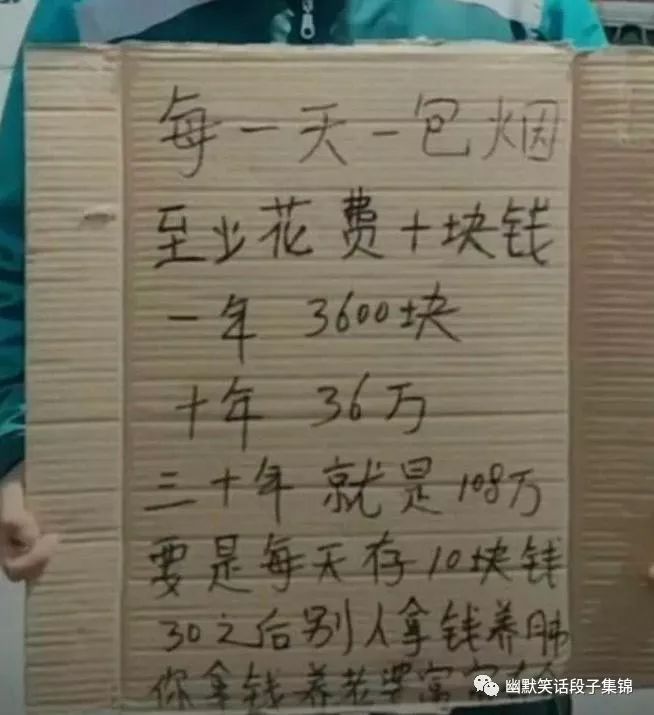 每一天一包烟
至少花费十块钱
一年 3600块
十年 36万
三十年 就是 108万
要是每天存10块钱
30之后别人拿钱养肺
你拿钱养老
幽默笑话段子集锦